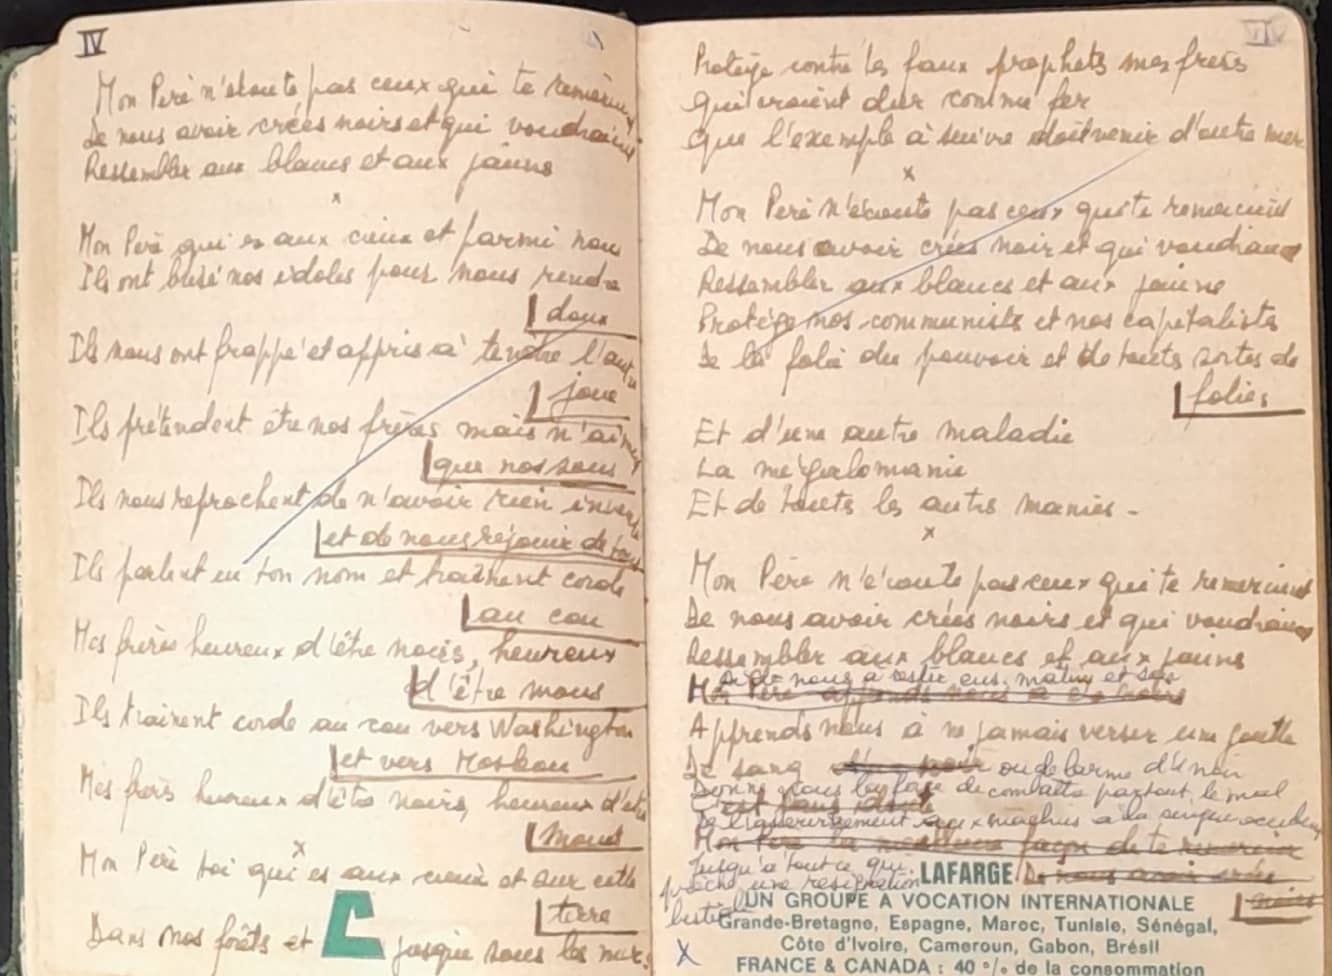 IV
Mon Père n'écoute pas ceux qui te
De nous avoir créés noirs et qui voudraient
Ressembler aux blancs et aux jaunes
x
Mon Père qui es aux cieux et parmi nous
Ils ont brisé nos idoles pour nous rendre
doux
Ils nous ont frappé et appris à tendre l'autre
joue
Ils prétendent être nos frères mais n'aiment
que nos sous
Ils nous reprochent de n'avoir rien inventé
et de nous réjouir de tout
Ils parlent en ton nom et traînent corde
au cou
Mes frères heureux d'être noirs, heureux
d'être mous
Ils trainent corde au cou vers Washington
et vers Moskou
Mes frères heureux d'être noirs, heureux d'être
mous
x
Mon Père toi qui es aux cieux et sur cette
terre
Dans nos forêts et jusque sous les mers
Protège contre les faux prophets mes frères
qui croient dur comme fer
que l'exemple à suivre doit venir d'outre mer
x
Mon Père n'écoute pas ceux qui te remercient
De nous avoir créés noir et qui voudraient
Ressembler aux blancs et aux jaune
Protège nos communists et nos capitalists
De la folie du pouvoir et de touts sortes de
folies
Et d'une autre maladie
La mégalomanie
Et de touts les autrs manies -
x
Mon Père n'écoute pas ceux qui te remercient
De nous avoir créés noirs et qui voudraient
Ressembler aux blancs et aux jaunes
nous à rester eus. matiny et
Mon Père apprends nous à
Apprends nous à ne jamais verser une goutte
De sang ou de larme d'un noir
Donne nous la de combattre partout le mal
De l'asservissement aux à la
Mon Père la meilleure façon de te remercier
Jusqu'à tout ce qui
LAFARGE De nous avoir créés
prêche une résignation
UN GROUPE A VOCATION INTERNATIONALE
noirs
Grande-Bretagne, Espagne, Maroc, Tunisie, Sénégal,
Côte d'Ivoire, Cameroun, Gabon, Brésil
x
FRANCE & CANADA : 40 % de la consommation